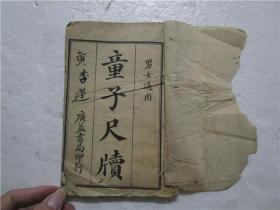 男女通用
童子尺牘
廣益書局印行